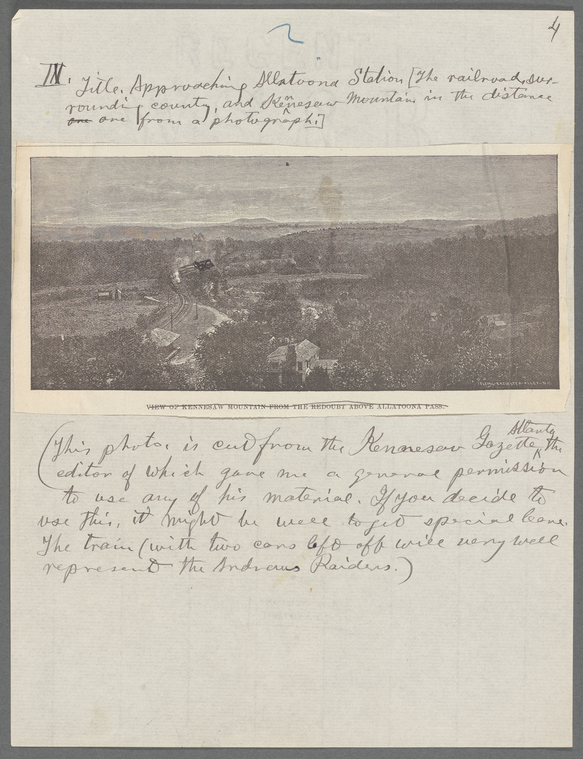 2
4
IV. Title. Approaching Allatoona Station [The railroad, sur-
rounding county, and Kennesaw Mountain in the distance
are are from a photograph.]
VIEW OF KENNESAW MOUNTAIN FROM THE REDOUBT ABOVE ALLATOONA PASS.
(This photo. is cut from the Kennesaw Gazette, Atlanta, the
editor of which gave me a general permission
to use any of his material. If you decide to
use this, it might be well to get special leave.
The train (with two cars left off will very well
represent the Andrews Raiders.)